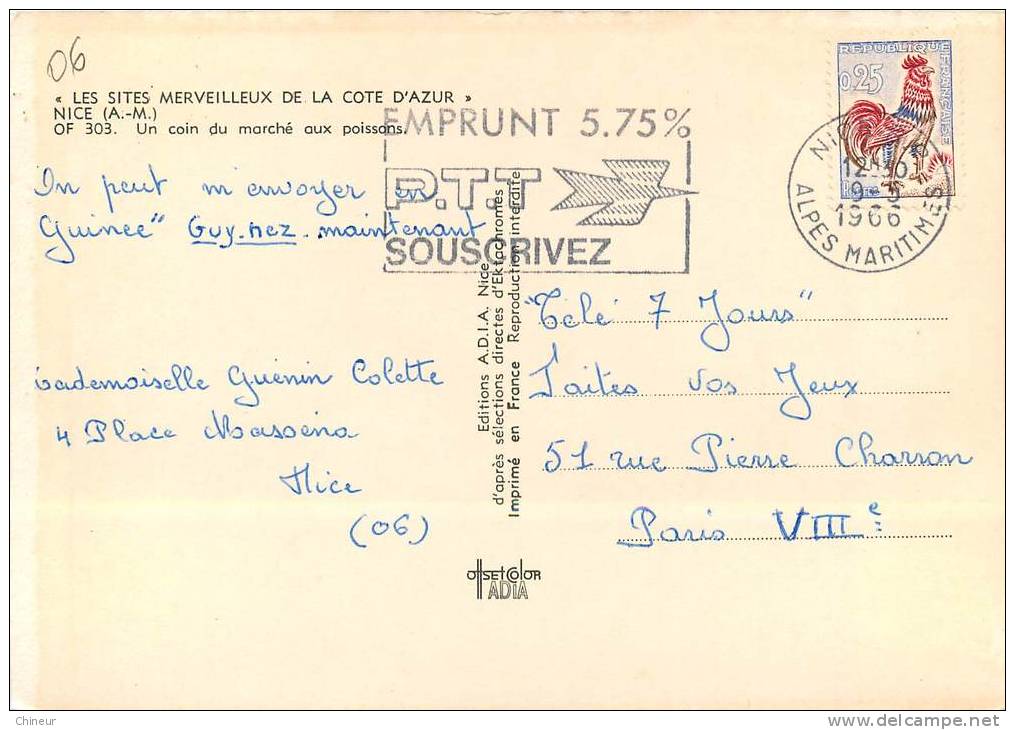 06
« LES SITES MERVEILLEUX DE LA COTE D'AZUR »
NICE (A.-M.)
OF 303. Un coin du marché aux poissons.
EMPRUNT 5.75%
P.T.T
SOUSCRIVEZ
REPUBLIQUE FRANÇAISE
0,25
NICE
12H
9-5
1966
ALPES MARITIMES
On peut m'envoyer en
Guinée" Guy.nez maintenant
Mademoiselle Guenin Colette
4 Place Masséna
Nice
(06)
Editions A.D.I.A. Nice
d'après sélections directes d'Ektachromes
Imprimé en France Reproduction interdite
"Télé 7 Jours"
Faites vos Jeux
51 rue Pierre Charron
Paris VIIIe
OFFSETCOLOR
ADIA
Chineur
www.delcampe.net